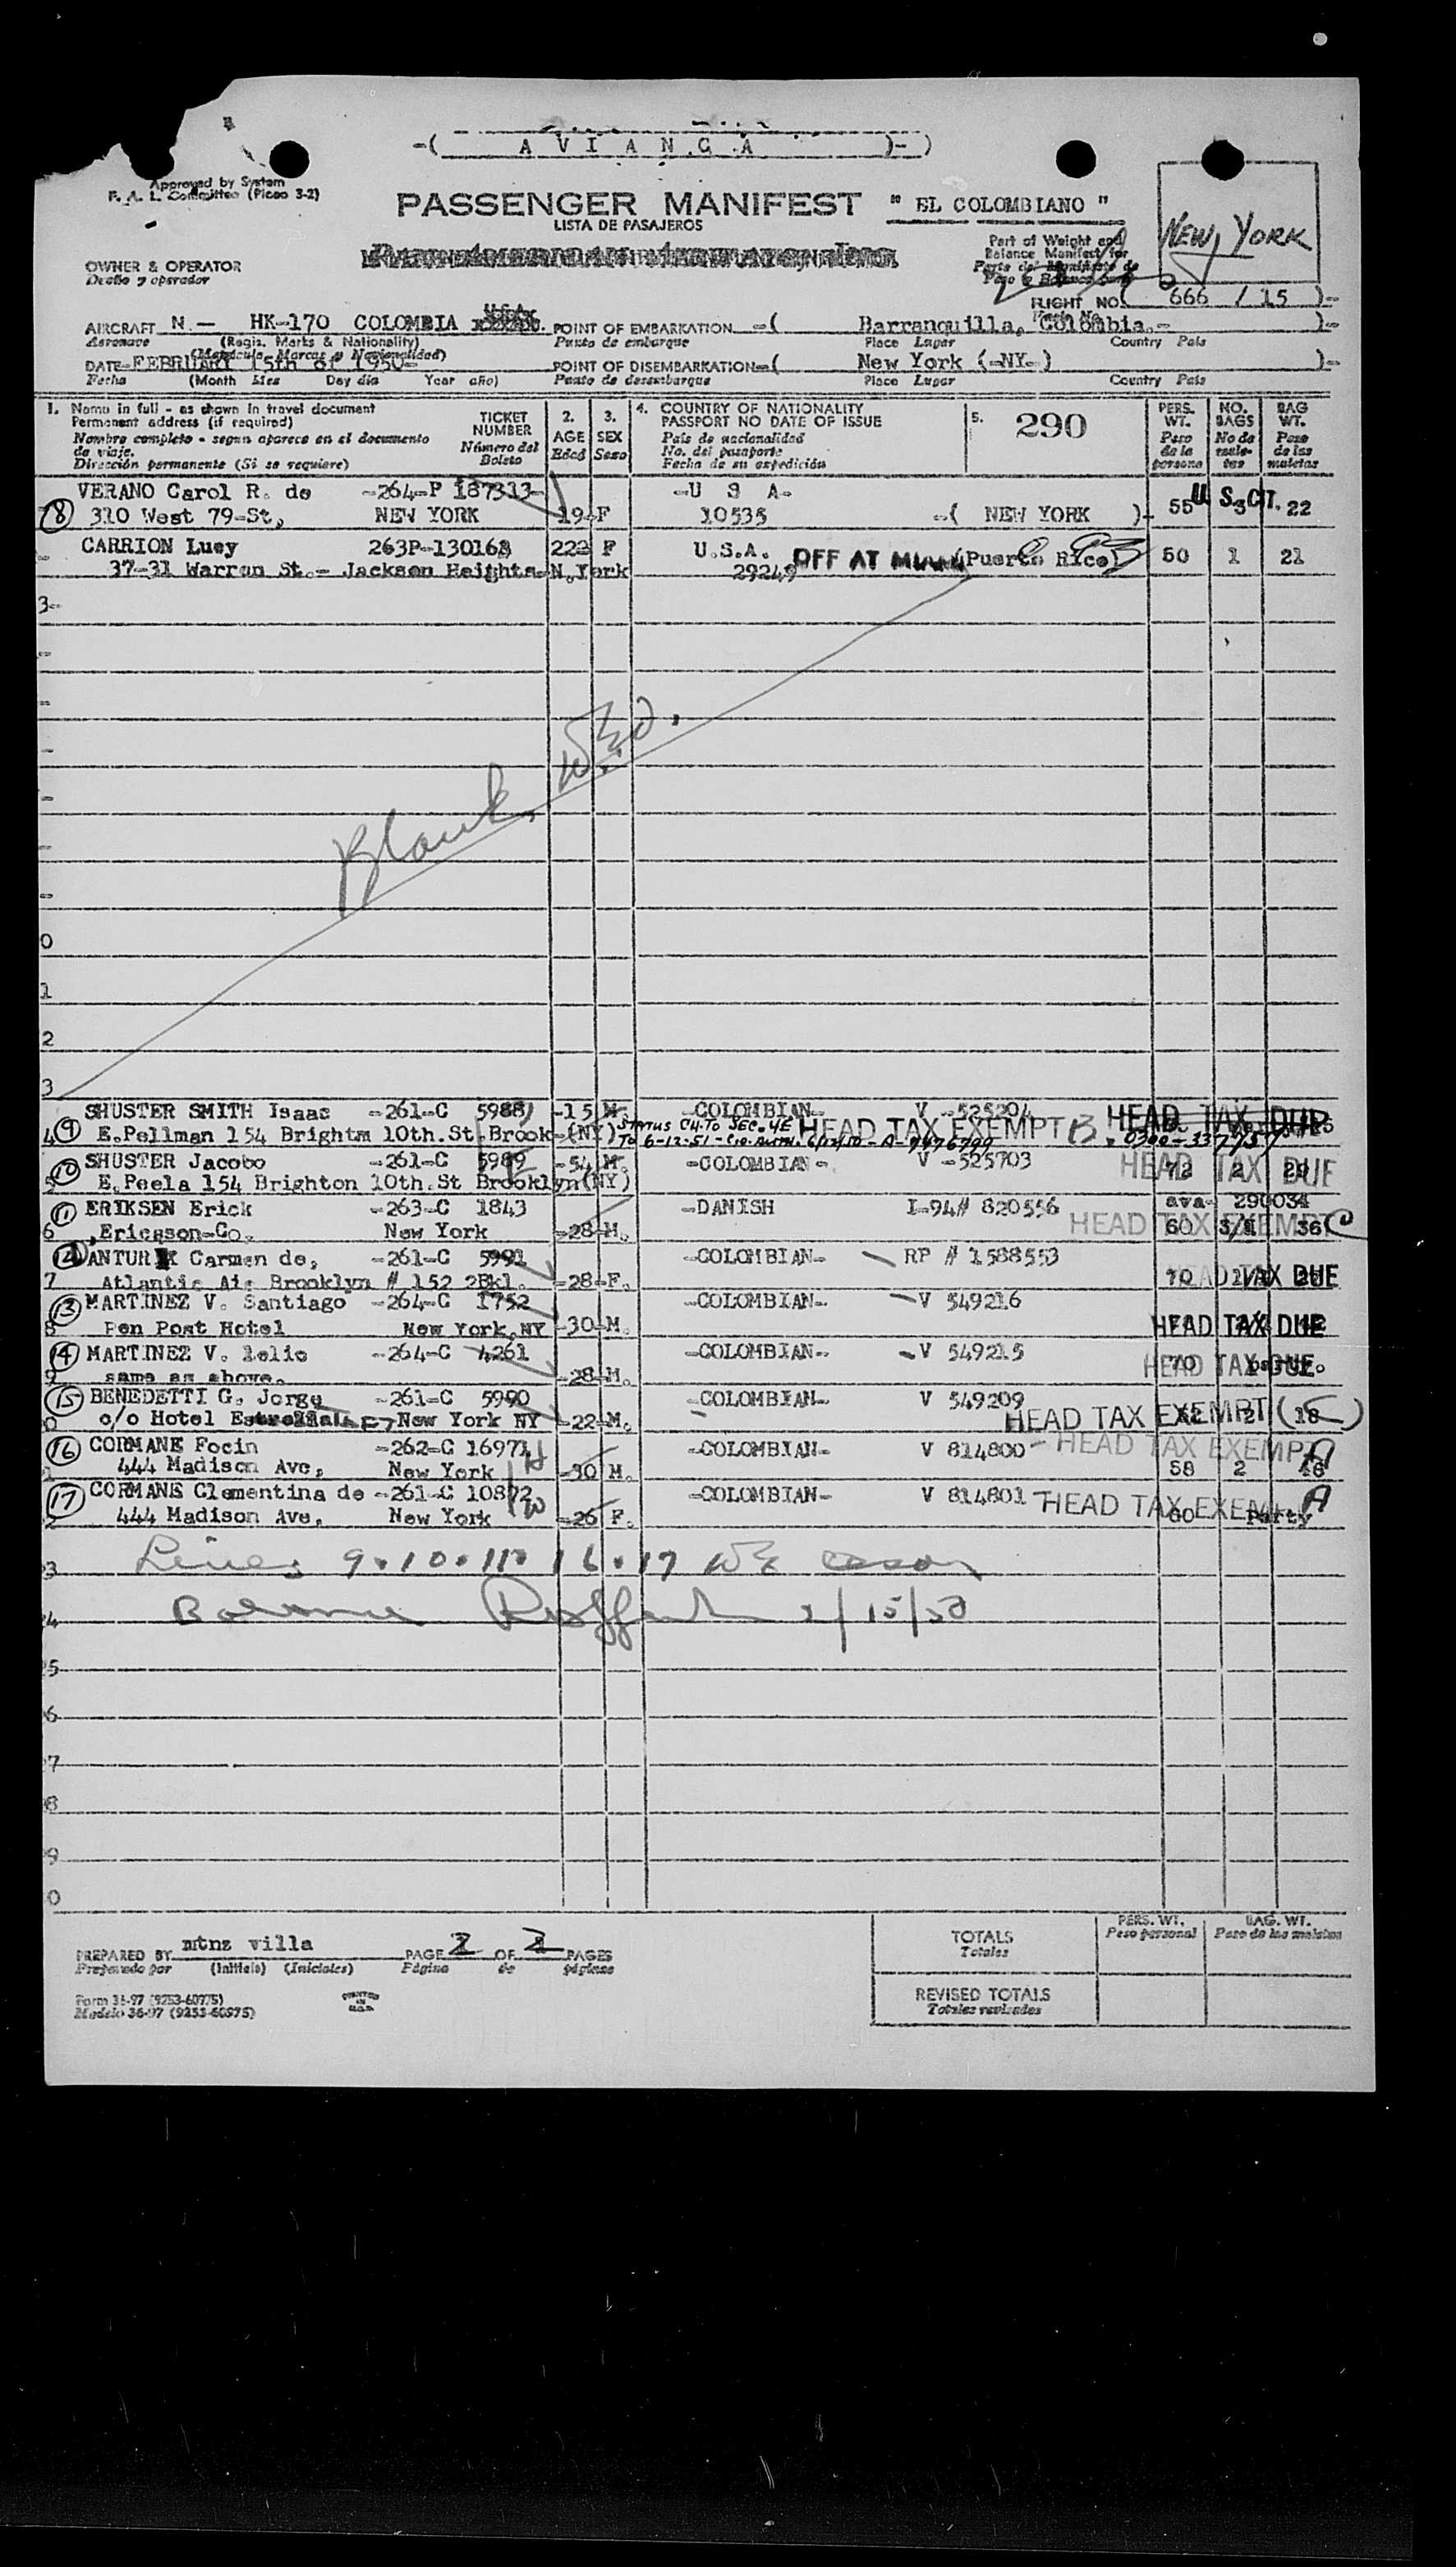 -( A V I A N C A )- )
Approved by System
F. A. L. Committee (Picao 3-2)
PASSENGER MANIFEST " EL COLOMBIANO "
LISTA DE PASAJEROS
NEW YORK
Part of Weight and
Balance Manifest for
Parte del Manifiesto de
Peso y Balance para
OWNER & OPERATOR
Dueño y operador
FLIGHT NO. ( 666 / 15 )-
AIRCRAFT N.- HK-170 COLOMBIA POINT OF EMBARKATION -( Barranquilla, Colombia.- )-
Aeronave (Regis. Marks & Nationality) Punto de embarque Place Lugar Country País
(Matrícula, Marcas y Nacionalidad)
DATE- FEBRUARY 15th of 1950- POINT OF DISEMBARKATION-( New York (-NY-) )-
Fecha (Month Mes Day día Year año) Punto de desembarque Place Lugar Country País
1. Name in full - as shown in travel document
Permanent address (if required)
Nombre completo - segun aparece en el documento
de viaje.
Dirección permanente (Si se requiere)
TICKET
NUMBER
Número del
Boleto
2.
AGE
Edad
3.
SEX
Sexo
4. COUNTRY OF NATIONALITY
PASSPORT NO DATE OF ISSUE
País de nacionalidad
No. del pasaporte
Fecha de su expedición
5. 290
PERS.
WT.
Peso
de la
persona
NO.
BAGS
No de
male-
tas
BAG
WT.
Peso
de las
maletas
VERANO Carol R. de -264-P 187313- -U S A- U.S. CIT.
8 310 West 79-St, NEW YORK 19-F 10535 -( NEW YORK )- 55 3 22
CARRION Lucy 263P-130168 222 F U.S.A. OFF AT MIAMI (Puerto Rico) 50 1 21
37-31 Warren St.- Jackson Heights-N.York 29249
3-
Blank
0
1
2
3
SHUSTER SMITH Isaac -261-C 5988 -15 M. -COLOMBIAN- V -525204 HEAD TAX DUE
4 9 E.Pellman 154 Brightm 10th.St.Brook-(NY) STATUS CH. TO SEC. 4E HEAD TAX EXEMPT B
TO 6-12-51 -
10 SHUSTER Jacobo -261-C 5989 -54 M. -COLOMBIAN-. V -525703 HEAD TAX DUE 72 2 29
5 E.Peela 154 Brighton 10th.St Brooklyn(NY)
11 ERIKSEN Erick -263-C 1843 -DANISH I-94# 820556 ava- 290034
6 ,Ericsson-Co. New York -28-M. HEAD TAX EXEMPT C 60 36
12 ANTUR Carmen de, -261-C 5991 -COLOMBIAN- RP # 1588553
7 Atlantic Aie Brooklyn # 152 2Bkl. -28-F. 70 HEAD TAX DUE
13 MARTINEZ V. Santiago -264-C 1752 -COLOMBIAN- -V 549216
8 Pen Post Hotel New York,NY -30-M. HEAD TAX DUE
14 MARTINEZ V. lelio -264-C 4261 -COLOMBIAN- -V 549215 HEAD TAX DUE 70
9 same as above. -28-M.
15 BENEDETTI G. Jorge -261-C 5990 -COLOMBIAN- V 549209
0 c/o Hotel New York NY -22-M. HEAD TAX EXEMPT (C) 2 18
16 CORMANE Focin -262-C 16971 -COLOMBIAN- V 814800 - HEAD TAX EXEMPT A
444 Madison Ave, New York -30 M. 58 2
17 CORMANE Clementina de -261-C 10872 -COLOMBIAN- V 814801 - HEAD TAX EXEMPT A
444 Madison Ave, New York -26 F. 60 Party
3 Lines 9.10.11. 16.17
4 Balance 2/15/50
5
6
7
8
9
0
PREPARED BY mtnz villa PAGE 2 OF 2 PAGES
Preparado por (Initials) (Iniciales) Página de páginas
Form 36-97 (9253-60975)
Modelo 36-97 (9253-60975)
PRINTED
IN
U.S.A.
PERS. WT. BAG. WT.
TOTALS Peso personal Peso de las maletas
Totales
REVISED TOTALS
Totales revisados